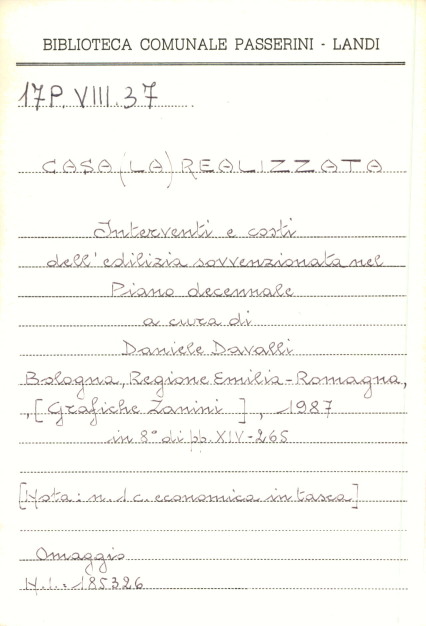 BIBLIOTECA COMUNALE PASSERINI - LANDI
17P. VIII. 37
CASA (LA) REALIZZATA
Interventi e costi
dell'edilizia sovvenzionata nel
Piano decennale
a cura di
Daniele Davalli
Bologna, Regione Emilia-Romagna,
, [Grafiche Zanini ] , 1987
in 8° di pp. XIV-265
[Nota: n. 1 c. economica in tasca]
Omaggio
N.i.: 185326